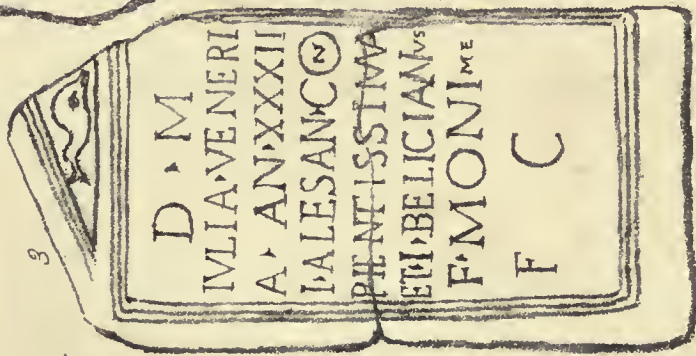 3
D · M
IVLIA·VENERI
A · AN·XXXII
I·ALESAN·CON
PIENTISSIMA
ET·I·BELICIANVS
F·MONIME
F C